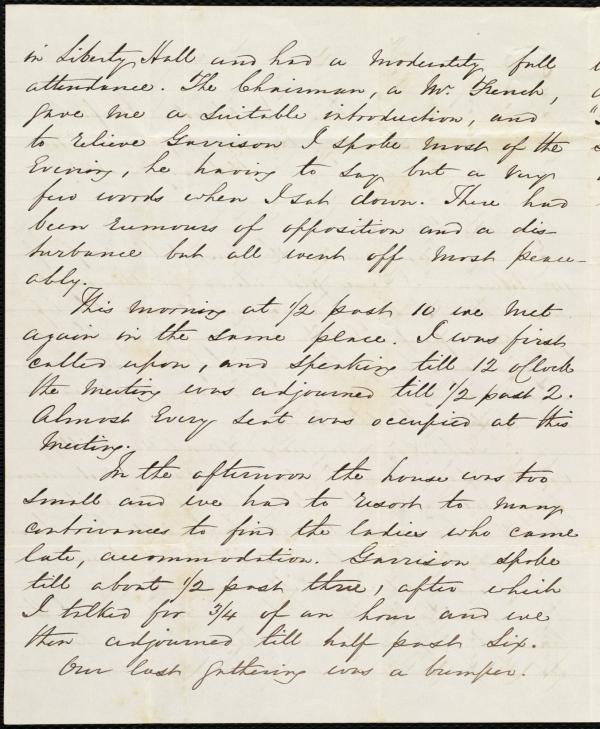 in Liberty Hall and had a moderately full
attendance. The Chairman, a Mr. French,
gave me a suitable introduction, and
to relieve Garrison I spoke most of the
Evening, he having to say but a very
few words when I sat down. There had
been rumours of opposition and a dis-
turbance but all went off most peace-
ably.
This morning at 1/2 past 10 we met
again in the same place. I was first
called upon, and speaking till 12 o'Clock
the meeting was adjourned till 1/2 past 2.
Almost Every seat was occupied at this
Meeting.
In the afternoon the house was too
small and we had to resort to many
contrivances to find the ladies who came
late, accommodation. Garrison spoke
till about 1/2 past three, after which
I talked for 3/4 of an hour and we
then adjourned till half past six.
Our last gathering was a bumper.